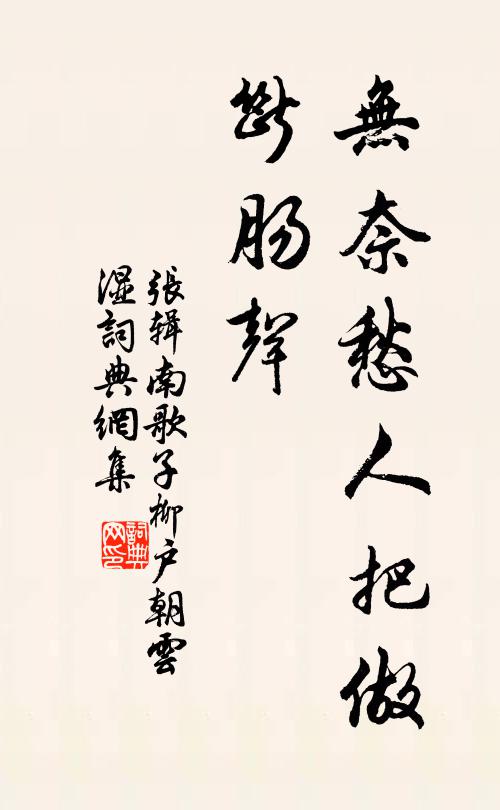 無奈愁人把做
斷肠聲
張辑南歌子柳户朝雲
湿詞典網集
詞典
网印